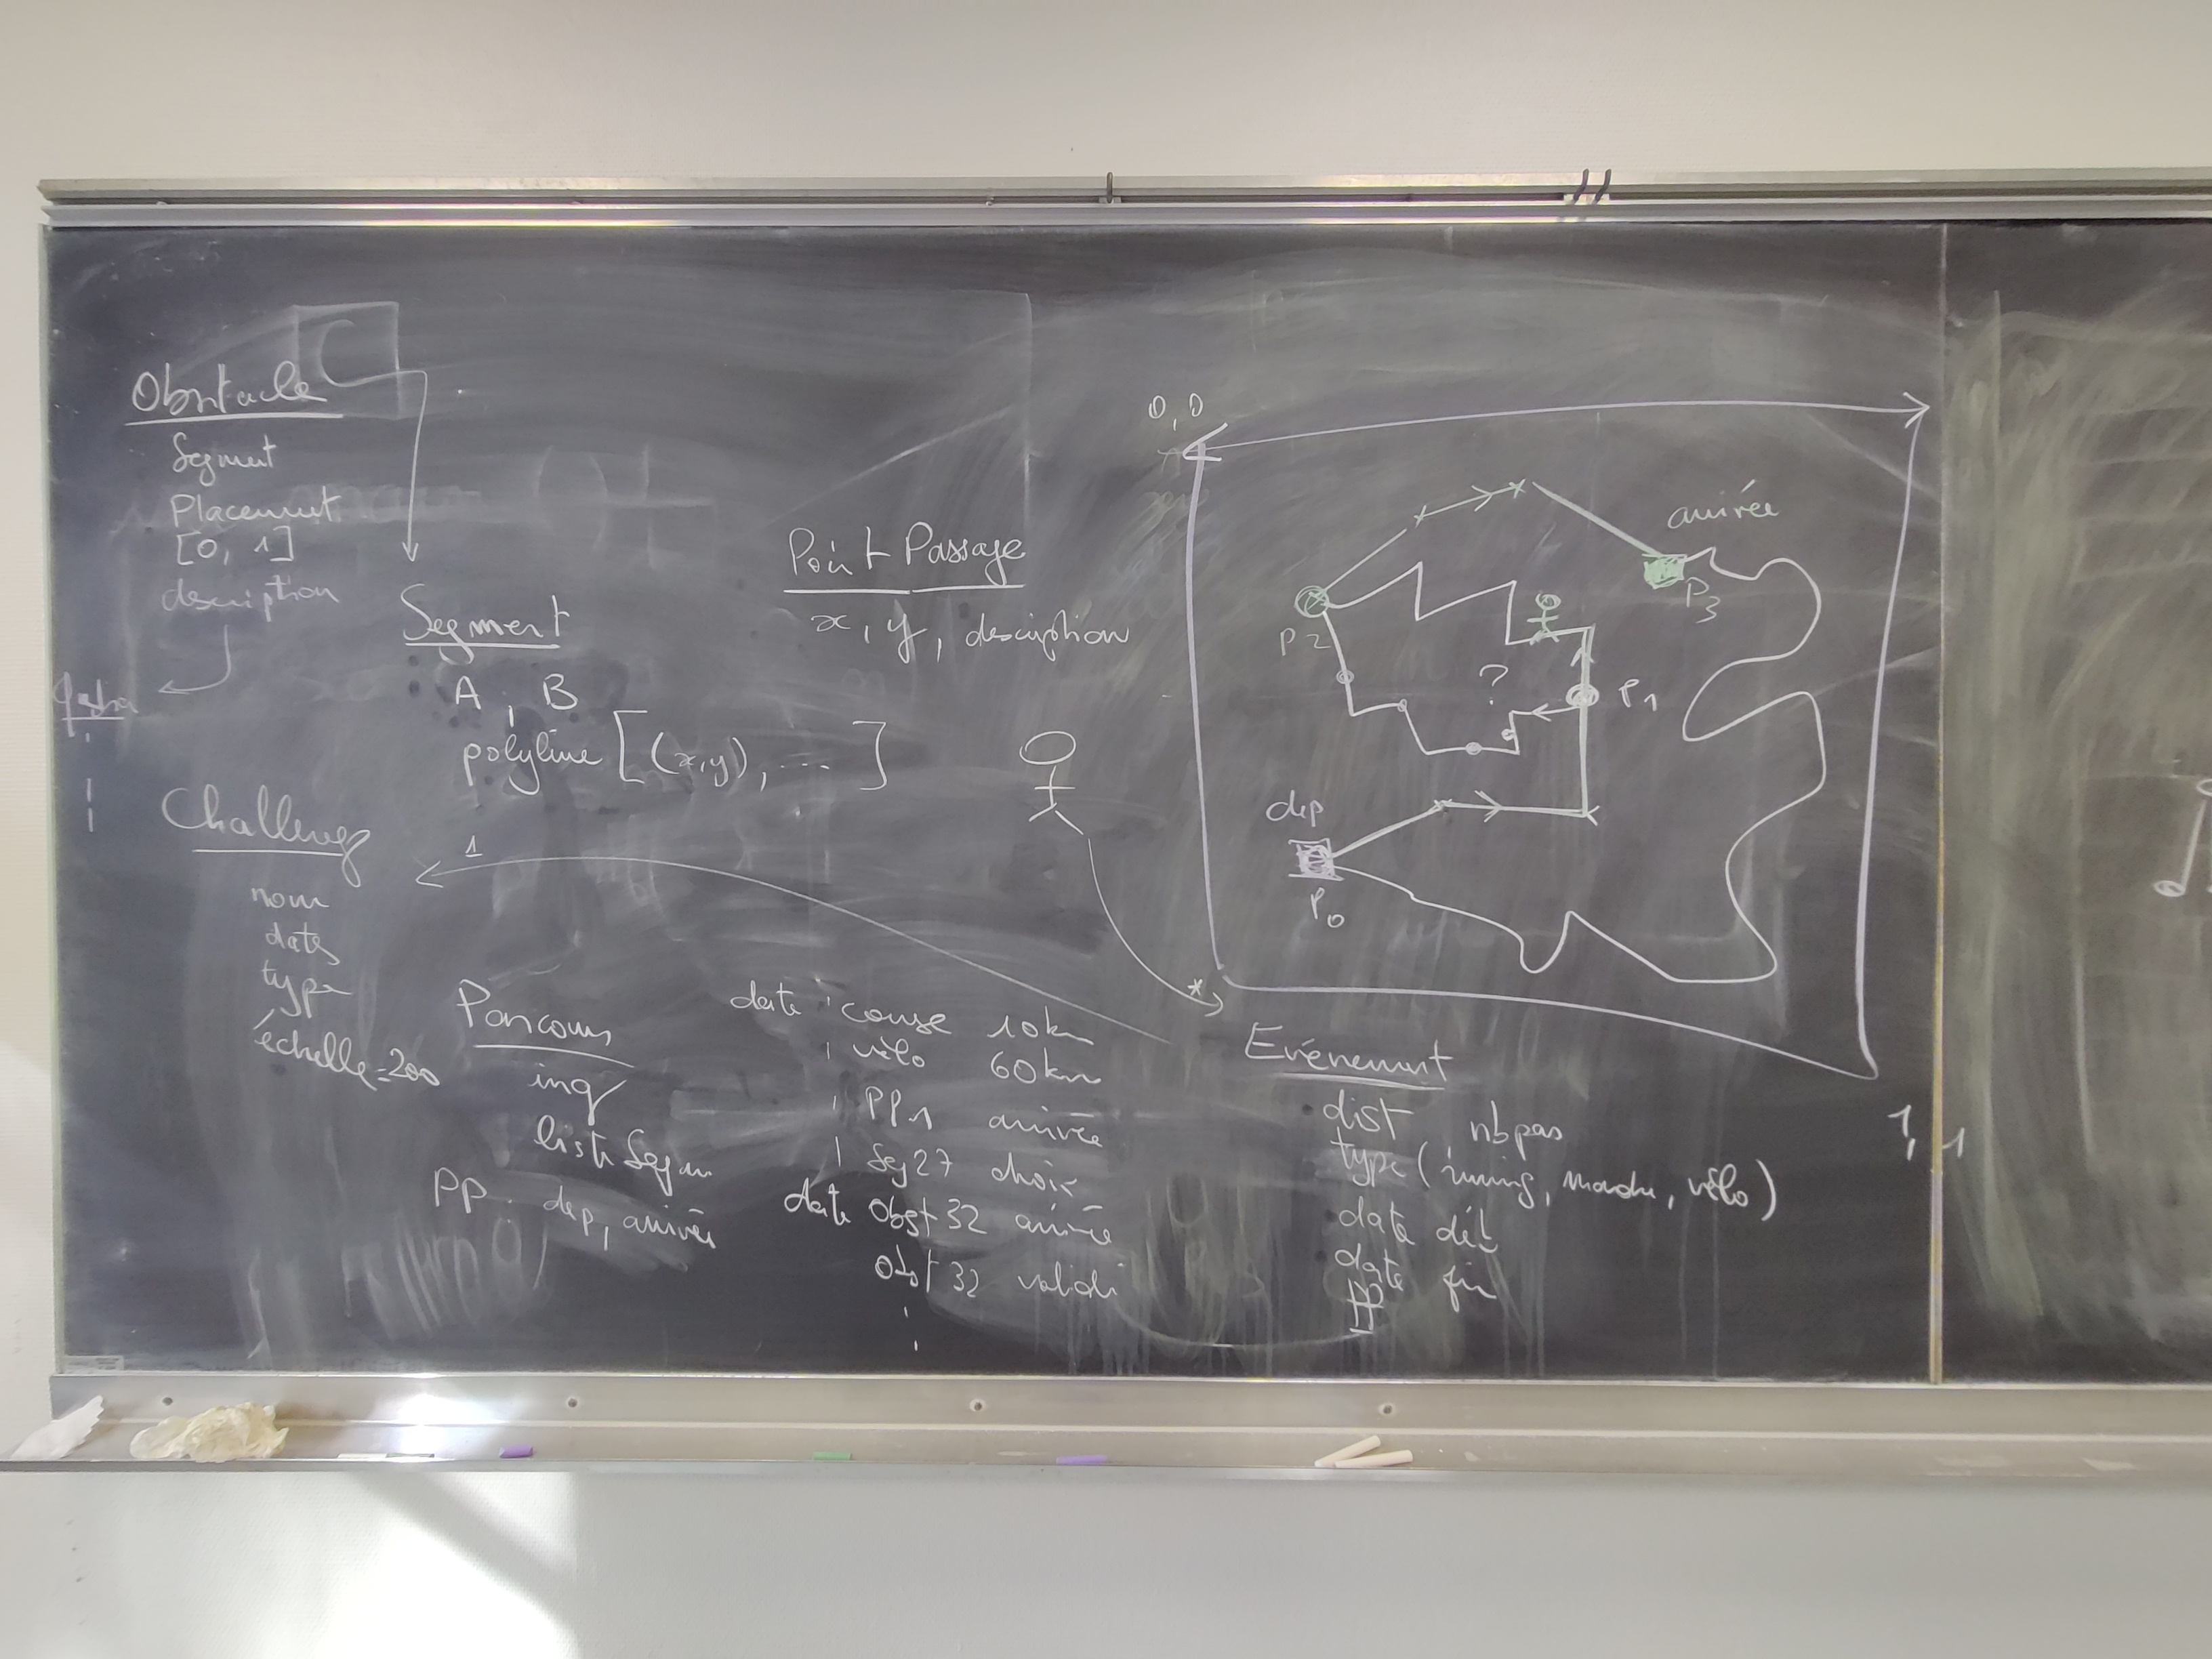 Obstacle
Segment
Placement
[0, 1]
description
Segment
A, B
polyline [(x,y), ... ]
Point Passage
x, y, description
Challenge
nom
date
type
échelle=200
1
Parcours
list Segm
PP : dep, arrivée
date : course 10km
vélo 60km
PP1 arrivée
Seg 27 choix
date Obst 32 arrivée
Obst 32 validé
*
0,0
arrivée
P3
P2
?
P1
dep
P0
1,1
Evénement
dist nb pas
type (running, marche, vélo)
date déb
date fin